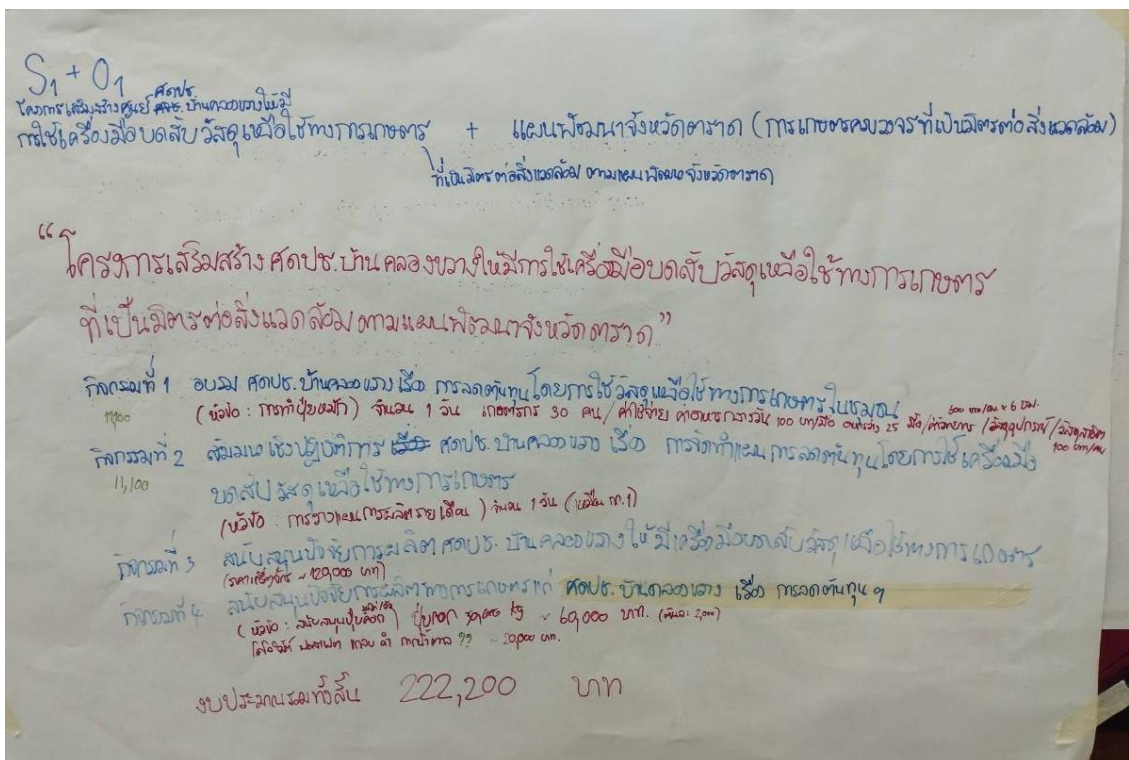 S1 + O1
โครงการเสริมสร้างศูนย์ ศดปช. บ้านคลองขวางให้มี
การใช้เครื่องมือบดสับวัสดุเหลือใช้ทางการเกษตร + แผนพัฒนาจังหวัดตราด (การเกษตรครบวงจรที่เป็นมิตรต่อสิ่งแวดล้อม)
ที่เป็นมิตรต่อสิ่งแวดล้อม ตามแผนพัฒนาจังหวัดตราด
“โครงการเสริมสร้าง ศดปช. บ้านคลองขวางให้มีการใช้เครื่องมือบดสับวัสดุเหลือใช้ทางการเกษตร
ที่เป็นมิตรต่อสิ่งแวดล้อม ตามแผนพัฒนาจังหวัดตราด”
กิจกรรมที่ 1 อบรม ศดปช. บ้านคลองขวาง เรื่อง การลดต้นทุนโดยการใช้วัสดุเหลือใช้ทางการเกษตรในชุมชน
(หัวข้อ : การทำปุ๋ยหมัก) จำนวน 1 วัน เกษตรกร 30 คน / ค่าใช้จ่าย ค่าอาหารกลางวัน 100 บาท/มื้อ อาหารว่าง 25 มื้อ / ค่าวิทยากร / วัสดุอุปกรณ์ / วัสดุสาธิต
600 บาท/ชม x 6 ชม.
100 บาท/คน
กิจกรรมที่ 2 สัมมนาเชิงปฏิบัติการ ศดปช. บ้านคลองขวาง เรื่อง การจัดทำแผนการลดต้นทุนโดยการใช้เครื่องมือ
11,100 บดสับวัสดุเหลือใช้ทางการเกษตร
(หัวข้อ : การวางแผนการผลิตรายเดือน) จำนวน 1 วัน (เหมือน กท.1)
กิจกรรมที่ 3 สนับสนุนปัจจัยการผลิต ศดปช. บ้านคลองขวางให้มีเครื่องมือบดสับวัสดุเหลือใช้ทางการเกษตร
(ราคาเครื่องจักร ~ 120,000 บาท)
กิจกรรมที่ 4 สนับสนุนปัจจัยการผลิตทางการเกษตรแก่ ศดปช. บ้านคลองขวาง เรื่อง การลดต้นทุนฯ
(หัวข้อ : สนับสนุนปุ๋ยคอก) ปุ๋ยคอก 30,000 kg ~ 60,000 บาท. (ตันละ 2,000)
แกลบ ดำ กากน้ำตาล ?? ~ 20,000 บาท.
งบประมาณรวมทั้งสิ้น 222,200 บาท